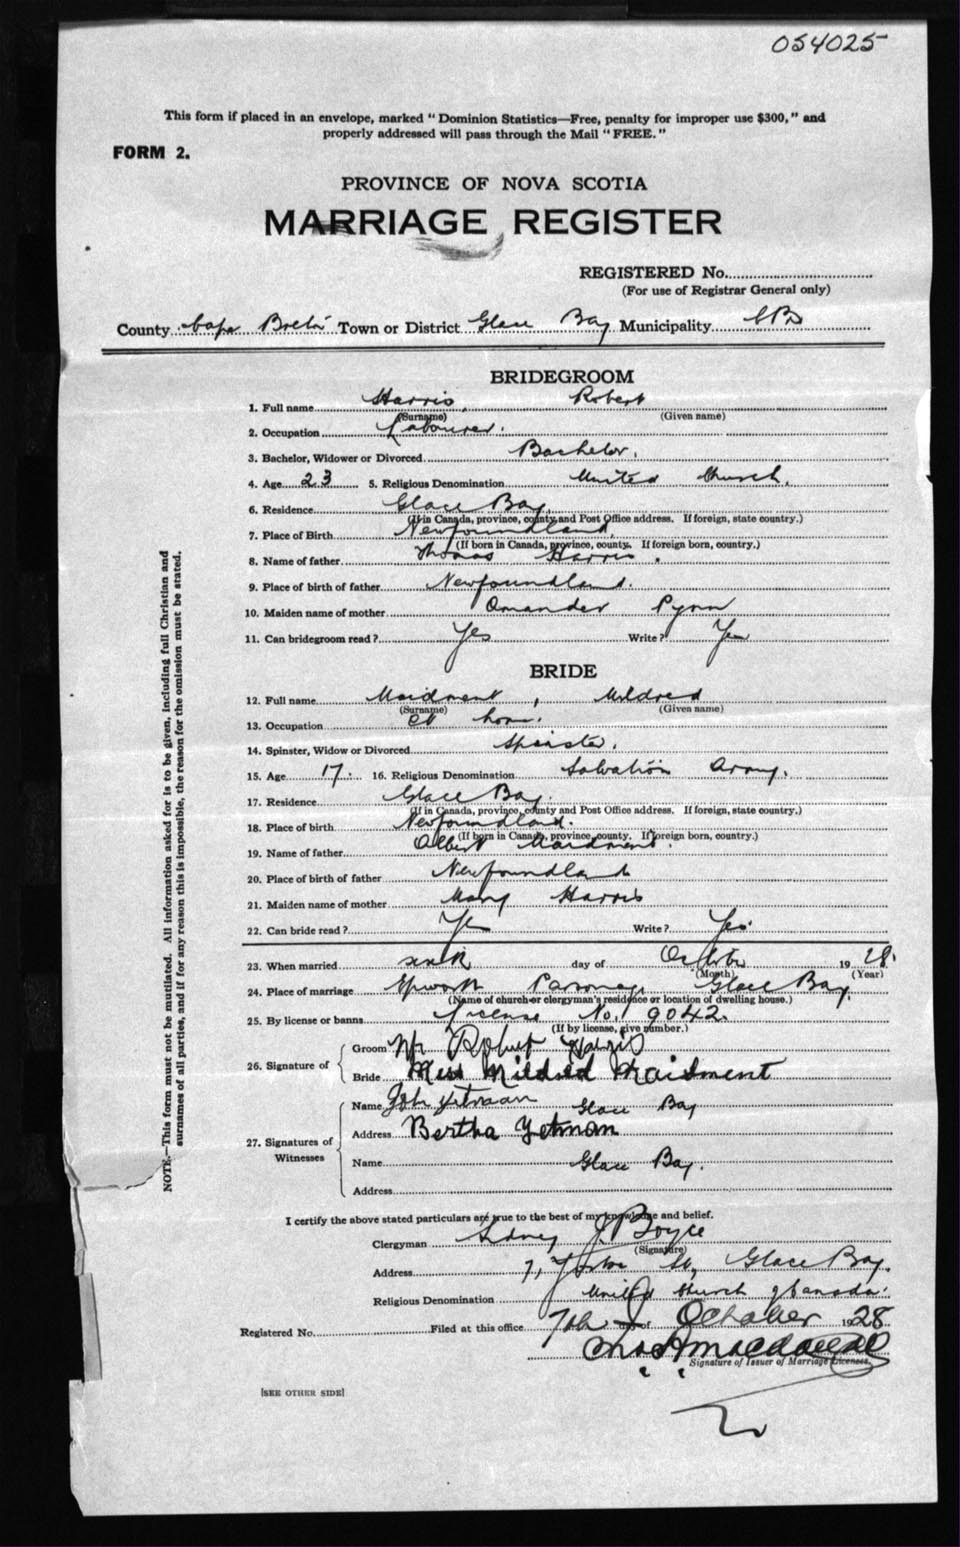 054025
This form if placed in an envelope, marked "Dominion Statistics—Free, penalty for improper use $300," and
properly addressed will pass through the Mail "FREE."
FORM 2.
PROVINCE OF NOVA SCOTIA
MARRIAGE REGISTER
REGISTERED No.
(For use of Registrar General only)
County Cape Breton Town or District Glace Bay Municipality C B
BRIDEGROOM
1. Full name Harris, Robert
(Surname) (Given name)
2. Occupation Labourer.
3. Bachelor, Widower or Divorced Bachelor.
4. Age 23 5. Religious Denomination United Church.
6. Residence Glace Bay
(If in Canada, province, county and Post Office address. If foreign, state country.)
7. Place of Birth Newfoundland
(If born in Canada, province, county. If foreign born, country.)
8. Name of father Thomas Harris.
9. Place of birth of father Newfoundland.
10. Maiden name of mother Amander Pynn
11. Can bridegroom read? Yes Write? Yes
BRIDE
12. Full name Maidment, Mildred
(Surname) (Given name)
13. Occupation at home.
14. Spinster, Widow or Divorced Spinster.
15. Age 17. 16. Religious Denomination Salvation Army.
17. Residence Glace Bay.
(If in Canada, province, county and Post Office address. If foreign, state country.)
18. Place of birth Newfoundland.
(If born in Canada, province, county. If foreign born, country.)
19. Name of father Albert Maidment.
20. Place of birth of father Newfoundland
21. Maiden name of mother Mary Harris
22. Can bride read? Yes Write? Yes
23. When married sixth day of October 1928.
(Month) (Year)
24. Place of marriage Epworth Parsonage Glace Bay.
(Name of church or clergyman's residence or location of dwelling house.)
25. By license or banns License No. 9042.
(If by license, give number.)
26. Signature of
Groom Mr Robert Harris
Bride Miss Mildred Maidment
27. Signatures of Witnesses
Name John Yetman
Glace Bay
Address Bertha Yetman
Name Glace Bay.
Address
I certify the above stated particulars are true to the best of my knowledge and belief.
Clergyman Sidney J Boyce
(Signature)
Address 7, York St, Glace Bay.
Religious Denomination United Church of Canada.
Registered No. Filed at this office 7th day of October 1928
Macdonald
Signature of Issuer of Marriage Licenses.
[SEE OTHER SIDE]
NOTE.—This form must not be mutilated. All information asked for is to be given, including full Christian and
surnames of all parties, and if for any reason this is impossible, the reason for the omission must be stated.